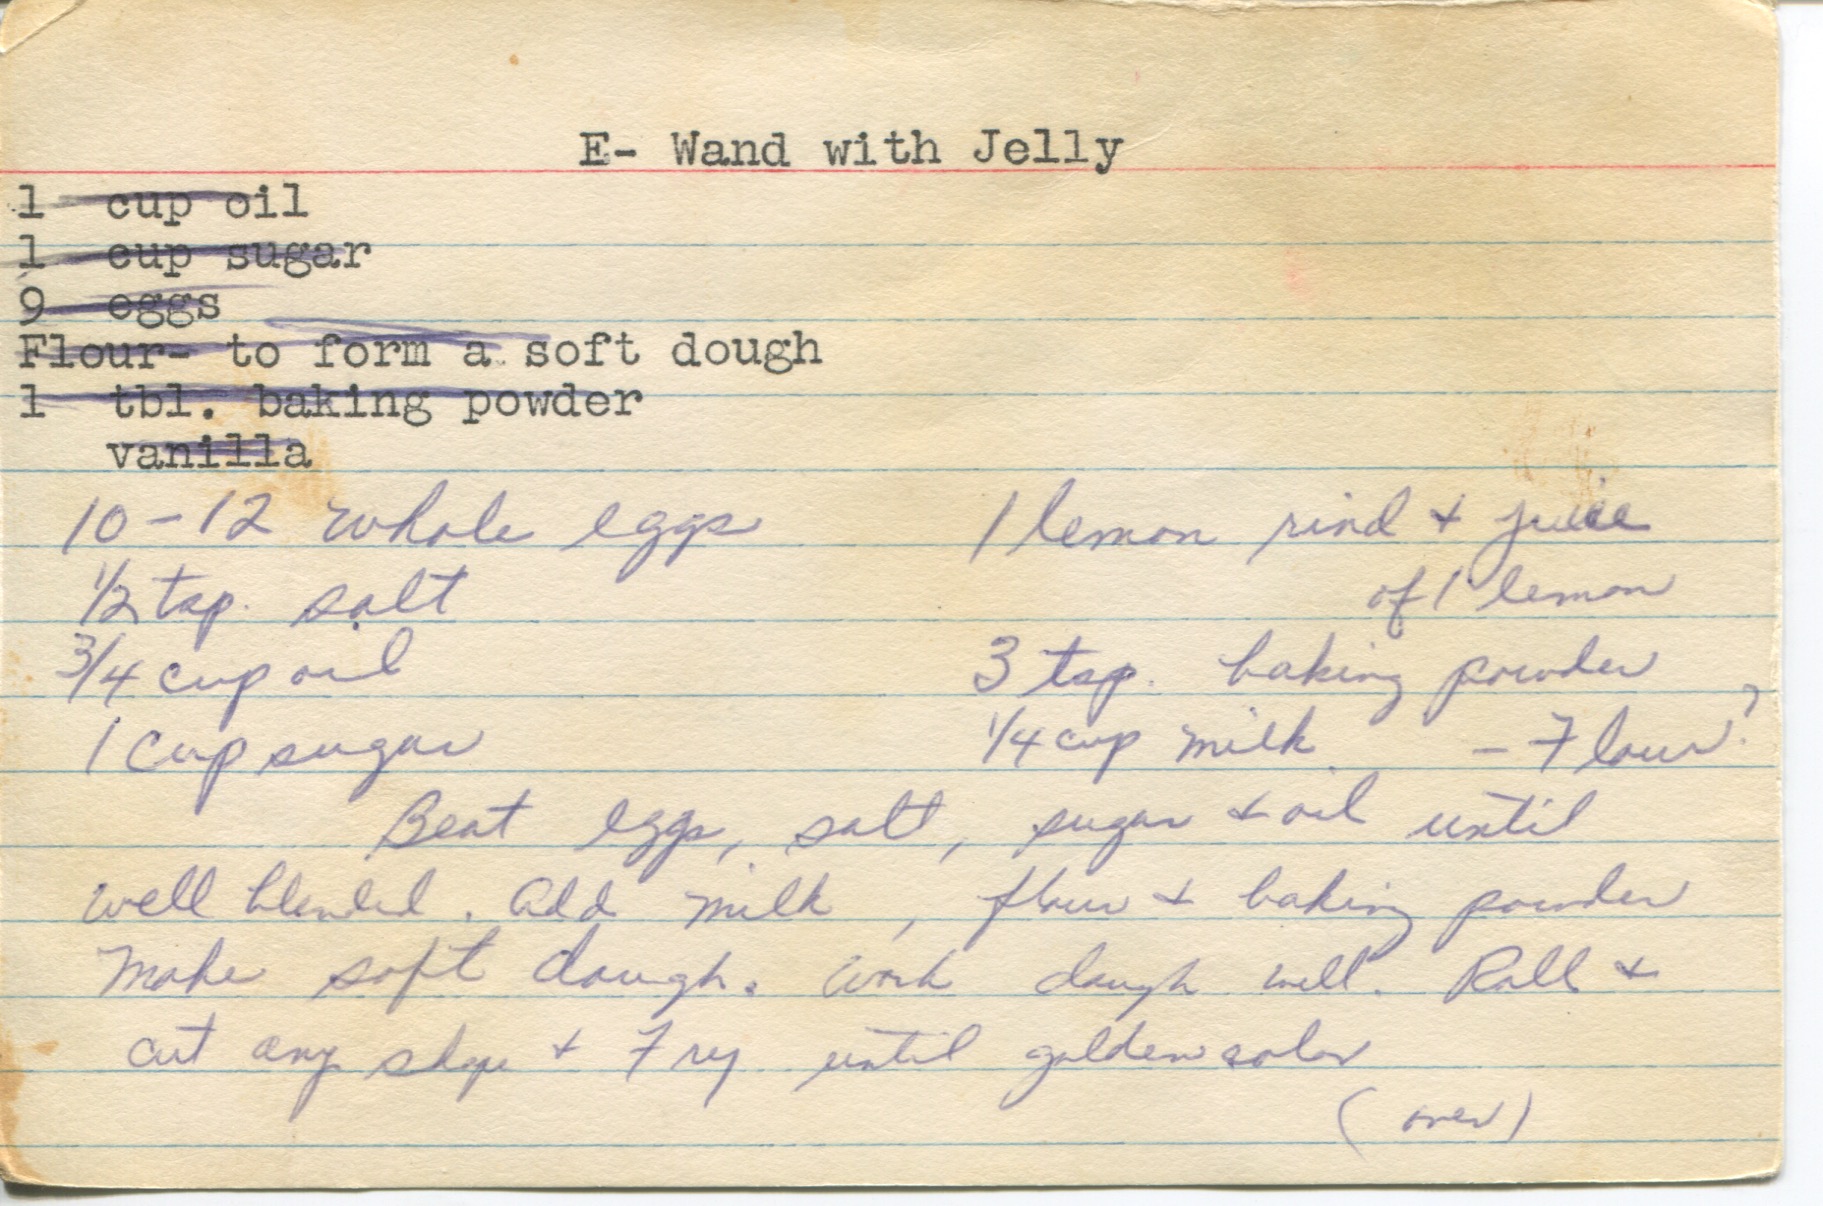 E- Wand with Jelly
1 cup oil
1 cup sugar
9 eggs
Flour- to form a soft dough
1 tbl. baking powder
vanilla
10-12 whole eggs 1 lemon rind + juice
1/2 tsp. salt of 1 lemon
3/4 cup oil 3 tsp. baking powder
1 cup sugar 1/4 cup milk - Flour?
Beat eggs, salt, sugar + oil until
well blended. Add milk, flour + baking powder
Make soft dough. Work dough well. Roll +
cut any shape + Fry until golden color
(over)